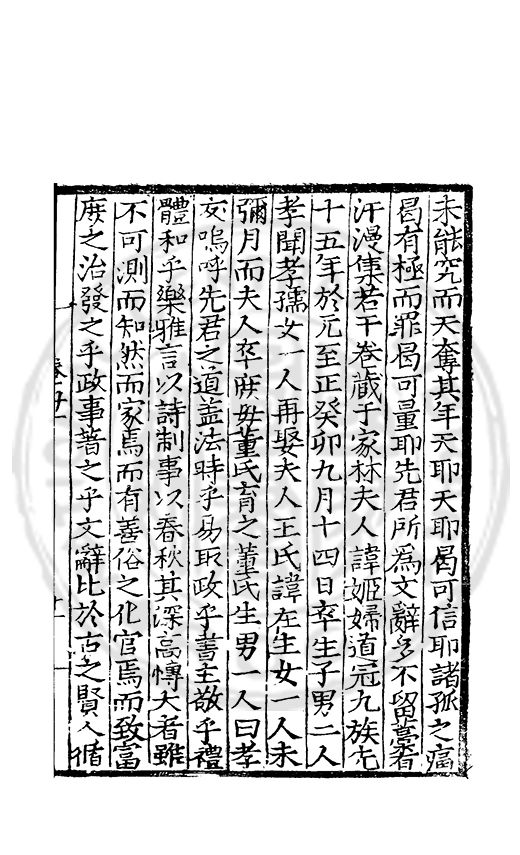 未能究而天奪其年天耶天耶曷可信耶諸孤之痛
曷有極而罪曷可量耶先君所為文辭多不留藁有
汗漫集若干卷藏于家林夫人諱姬婦道冠九族先
十五年於元至正癸卯九月十四日卒生子男二人
孝聞孝孺女一人再娶夫人王氏諱在生女一人未
彌月而夫人卒庶母董氏育之董氏生男一人曰孝
友嗚呼先君之道盖法時乎易取政乎書主敬乎禮
體和乎樂雅言以詩制事以春秋其深高慱大者雖
不可測而知然而家焉而有善俗之化官焉而致富
庶之治發之乎政事著之乎文辭比於古之賢人循
卷廿一
十一